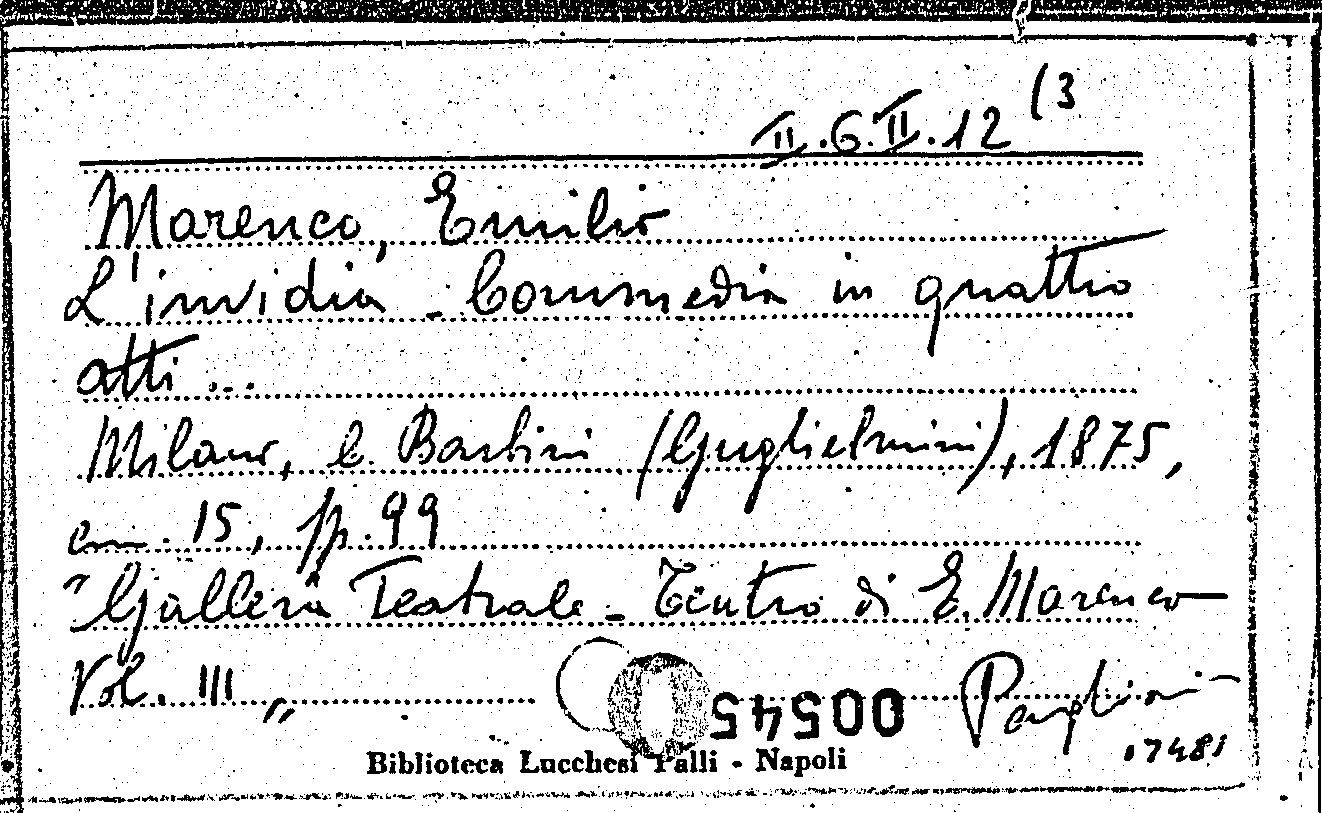 II.G.II.12 (3
Marenco, Emilio
L'invidia - Commedia in quattro
atti ...
Milano, C. Barbini (Guglielmini), 1875,
cm. 15, pp. 99
"Galleria Teatrale - Teatro di E. Marenco
Vol. III "
00545
Biblioteca Lucchesi Palli - Napoli